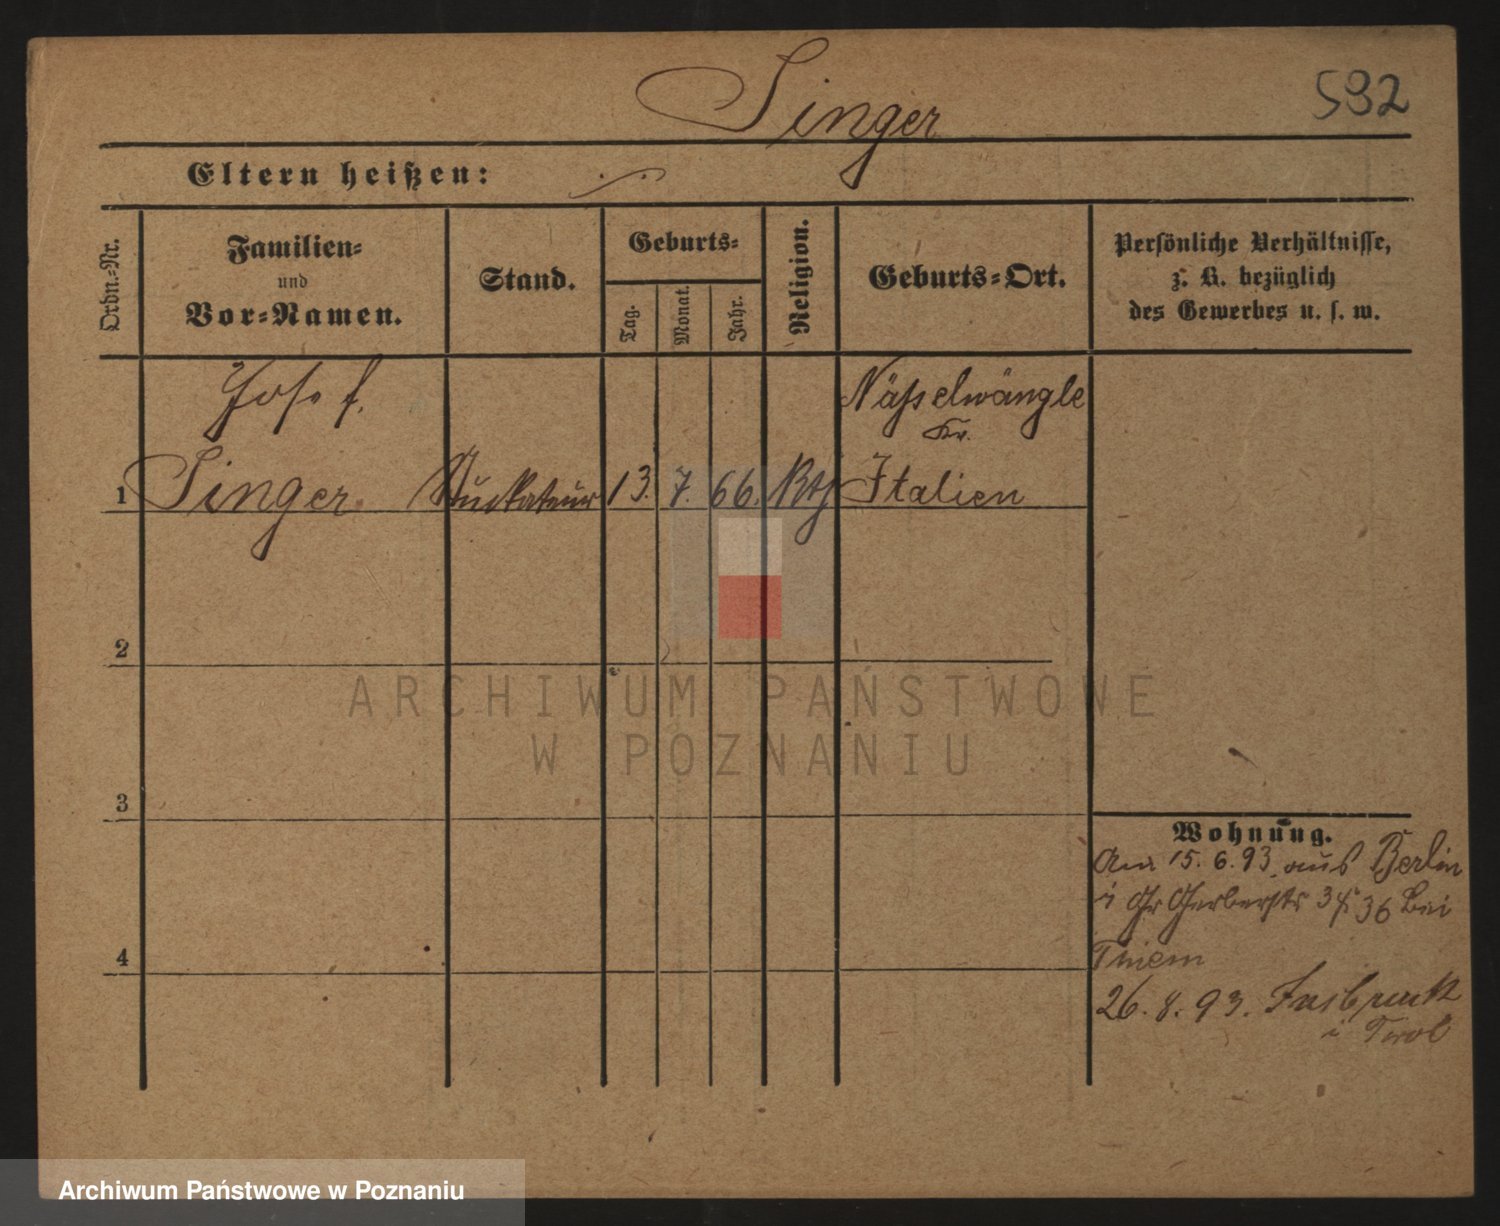 Singer
592
Eltern heißen:
Ordn.-Nr.
Familien-
und
Vor-Namen.
Stand.
Geburts-
Tag.
Monat.
Jahr.
Religion.
Geburts-Ort.
Persönliche Verhältnisse,
z. B. bezüglich
des Gewerbes u. s. w.
Josef.
Näßselwängle
Kr.
1 Singer Stuckateur 13. 7. 66. Italien
2
ARCHIWUM PAŃSTWOWE
W POZNANIU
3
Wohnung.
15. 6. 93 aus Berlin
i Gr Gerberstr 36 bei
Thiem
4
26. 8. 93. Insbruck
i Tirol
Archiwum Państwowe w Poznaniu